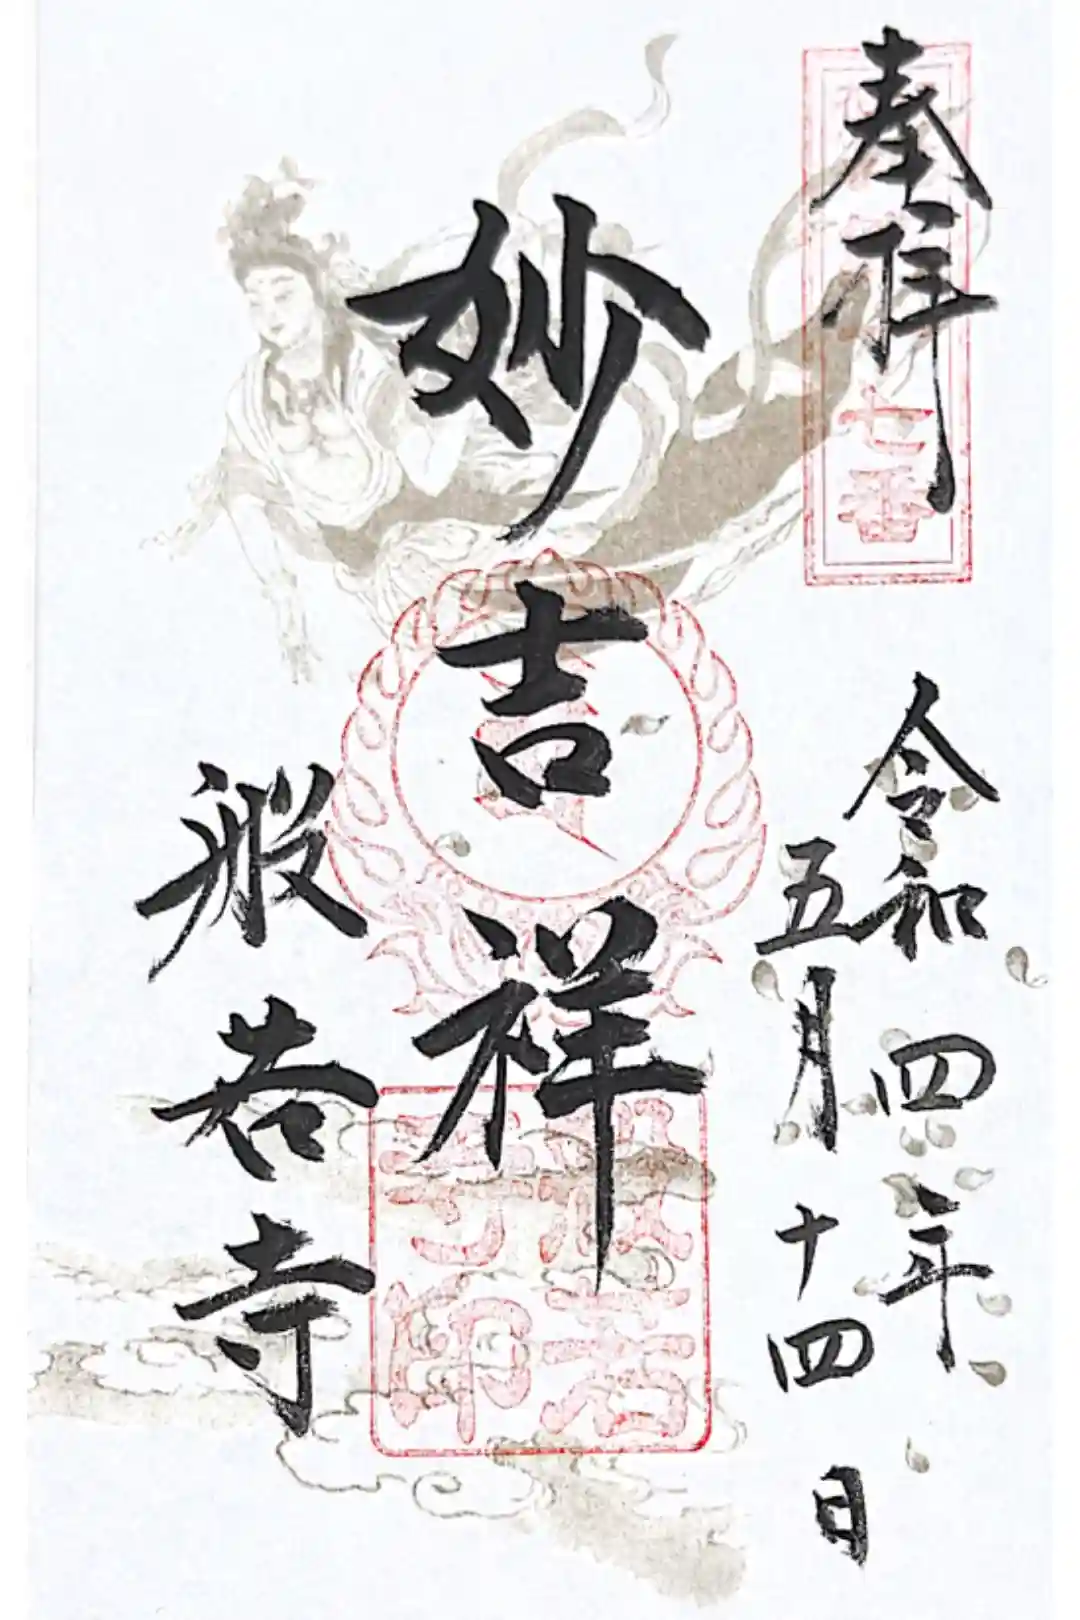 奉拝
七番
令和四年
五月十四日
妙吉祥
般若寺印
般若寺